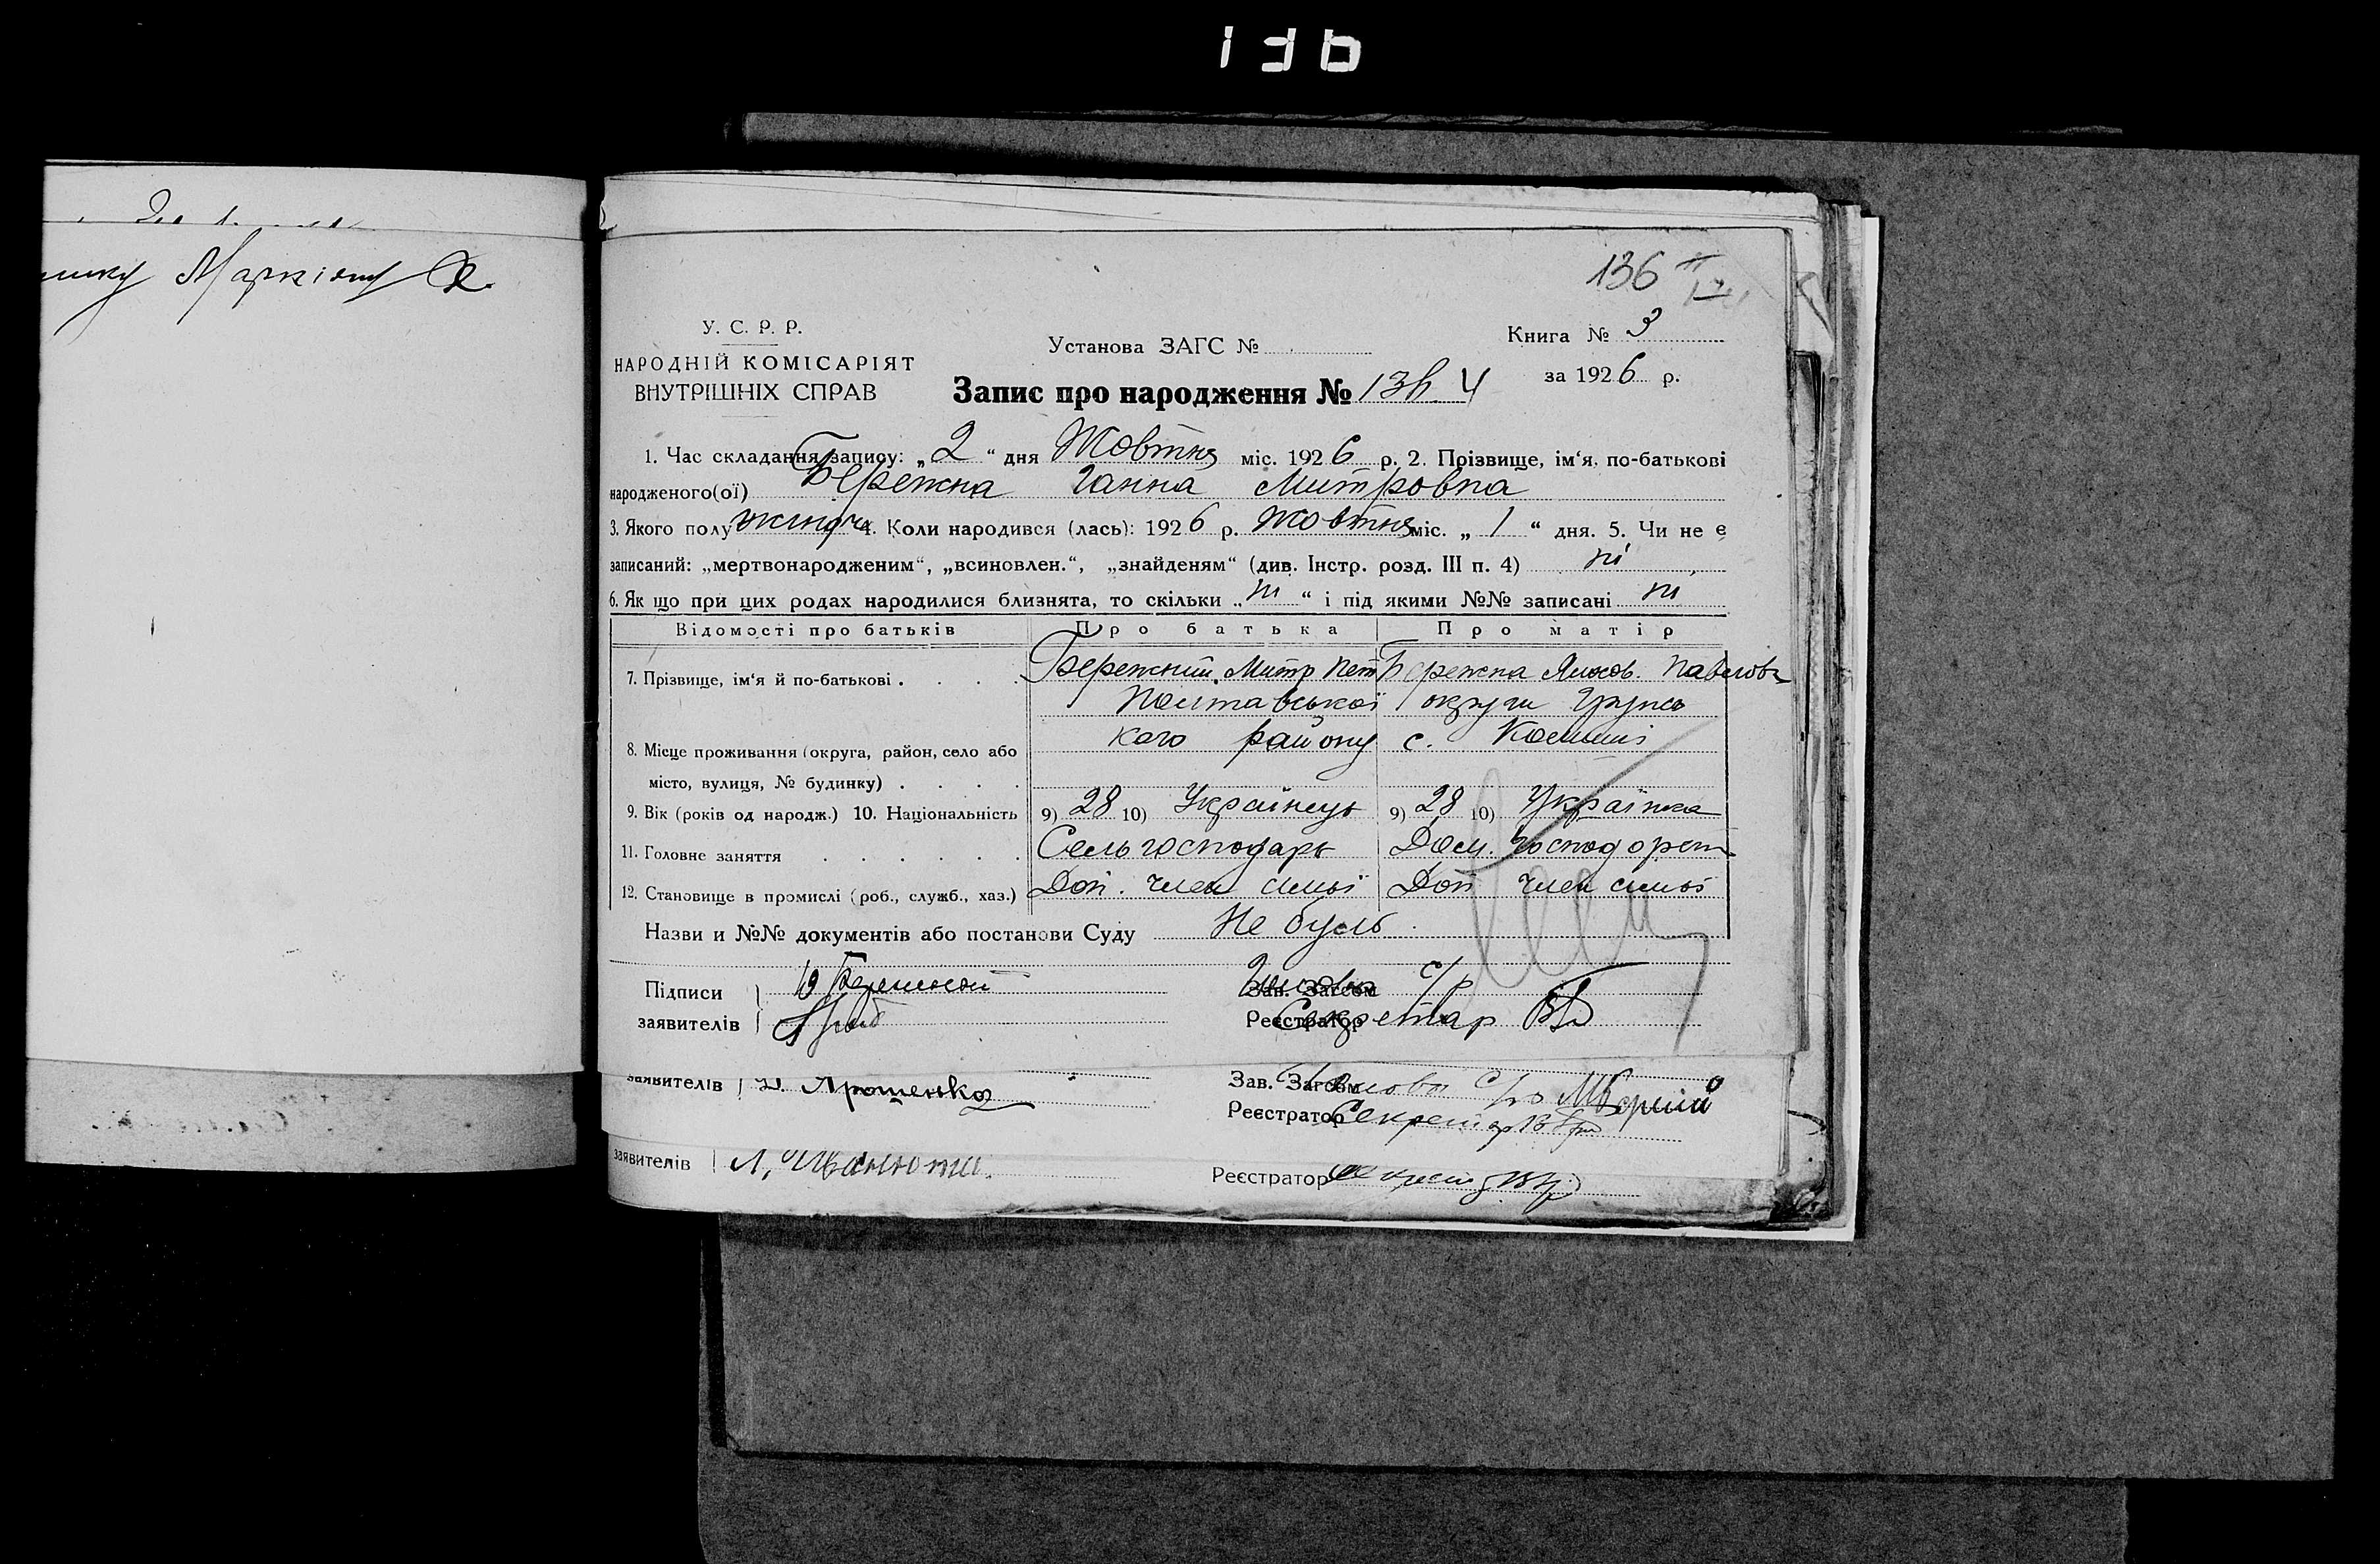 136
Маркіяну
136
У. С. Р. Р.
НАРОДНІЙ КОМІСАРІЯТ
ВНУТРІШНІХ СПРАВ
Установа ЗАГС №
Книга № 3
за 1926 р.
Запис про народження № 136 Ч
1. Час складання запису: „2“ дня Жовтня міс. 1926 р. 2. Прізвище, ім‘я, по-батькові
народженого(ої) Бережна Ганна Митровна
3. Якого полу жіноч. 4. Коли народився (лась): 1926 р. Жовтня міс. „1“ дня. 5. Чи не є
записаний: „мертвонародженим“, „всиновлен.“, „знайденям“ (див. Інстр. розд. III п. 4) ні
6. Як що при цих родах народилися близнята, то скільки „ні“ і під якими №№ записані ні
Відомості про батьків Про батька Про матір
7. Прізвище, ім‘я й по-батькові . . . . Бережний Митр Пет Бережна Павлов
Полтавської округи Грунсь
8. Місце проживання (округа, район, село або кого району с.
місто, вулиця, № будинку) . . . .
9. Вік (років од народж.) 10. Національність 9) 28 10) Українець 9) 28 10) Українка
11. Головне заняття . . . . . . Сель господарь Дом.
12. Становище в промислі (роб., служб., хаз.) Доп. член сімьї Доп член сімьї
Назви и №№ документів або постанови Суду Не було
Підписи Бережной Зав. Загсом Голова с/р
заявителів Реєстратор Секретар
заявителів Ярошенко Зав. Загсом Голова с/р
Реєстратор Секретар
заявителів Л. Иванюта. Реєстратор